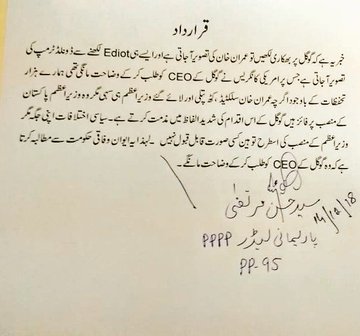 قرارداد
خبر یہ ہے کہ گوگل پر بھکاری لکھیں تو عمران خان کی تصویر آ جاتی ہے اور ایسے ہی Ediot لکھنے سے ڈونلڈ ٹرمپ کی
تصویر آ جاتی ہے جس پر امریکی کانگریس نے گوگل کے CEO کو طلب کر کے وضاحت مانگی تھی ہمارے ہزار
تحفظات کے باوجود اگرچہ عمران خان سلیکٹیڈ، کٹھ پتلی اور لائے گئے وزیر اعظم ہی سہی مگر وہ وزیر اعظم پاکستان
کے منصب پر فائز ہیں گوگل کے اس اقدام کی شدید الفاظ میں مذمت کرتے ہے۔ سیاسی اختلافات اپنی جگہ مگر
وزیر اعظم کے منصب کی اسطرح توہین کسی صورت قابل قبول نہیں ۔ لہذا یہ ایوان وفاقی حکومت سے مطالبہ کرتا
ہے کہ وہ گوگل کے CEO کو طلب کر کے وضاحت مانگے۔
سید حسن مرتضیٰ
پارلیمانی لیڈر PPPP
PP-95